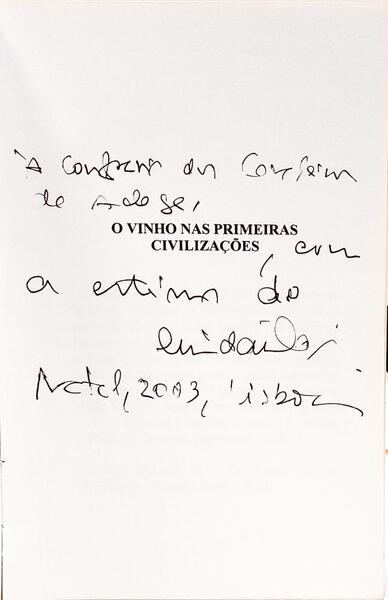 À Confraria dos Confrades
de
O VINHO NAS PRIMEIRAS
CIVILIZAÇÕES
, com
a estima do
Natal, 2003, Lisboa